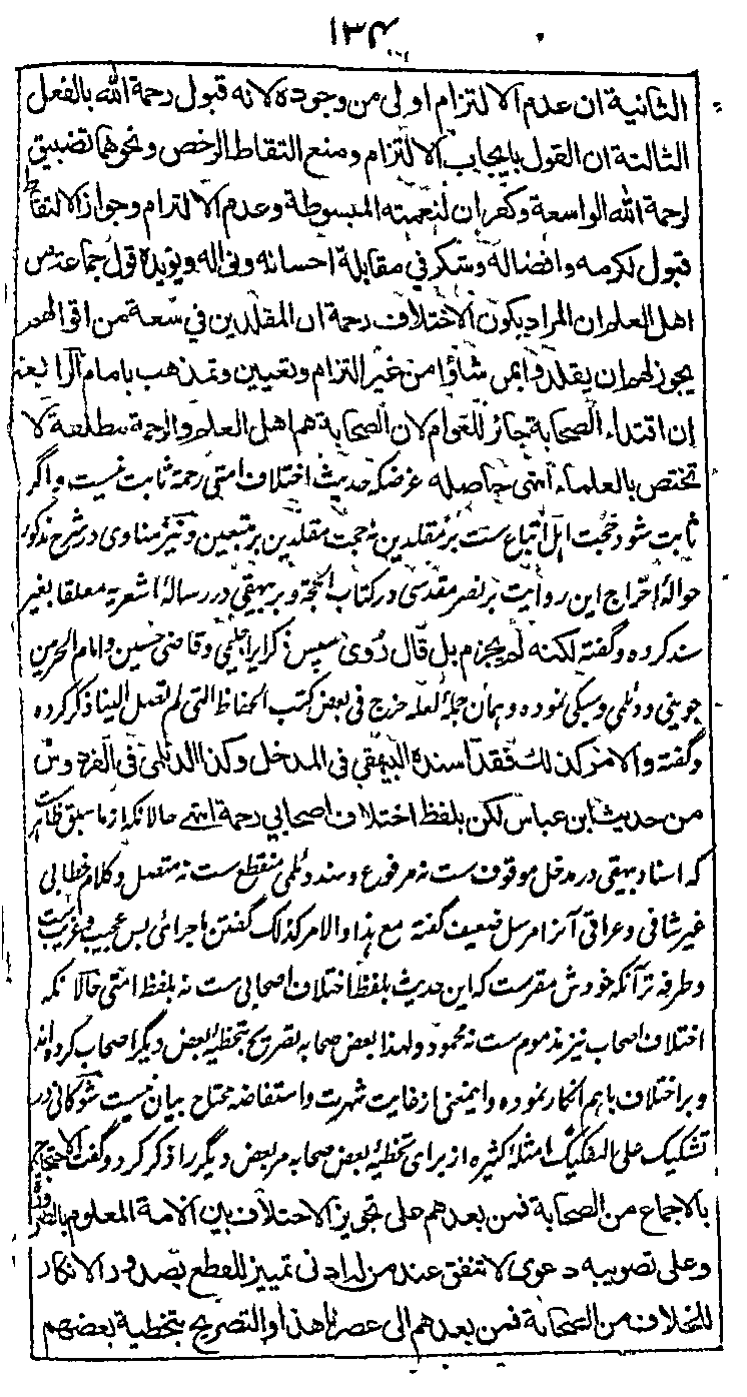 ۱۳۴
الثانية ان عدم الالتزام اولى من وجوده لانه قبول رحمة الله بالفعل
الثالثة ان القول بايجاب الالتزام ومنع التقاط الرخص ونحوهما تضييق
لرحمة الله الواسعة وكفران لنعمته المبسوطة وعدم الالتزام وجواز الالتقاط
قبول لكرمه وافضاله وشكر في مقابلة احسانه ونواله ويؤيده قول جماعة من
اهل العلم ان المراد بكون الاختلاف رحمة ان المقلدين في سعة من اقوالهم
يجوز لهم ان يقلدوا بمن شاؤا من غير التزام وتعيين وتمذهب بامام
ان اقتداء الصحابة جائز للعوام لان الصحابة هم اهل العلم والرحمة مطلقة لا
تختص بالعلماء انتهى حاصله غرضکه حدیث اختلاف امتی رحمة ثابت نیست واگر
ثابت شود حجت اہل اتباع ست بر مقلدین نہ حجت مقلدین بر متبعین ونیز مناوی در شرح مذکور
حوالۂ اخراج این روایت بر نصر مقدسی در کتاب الحجة وبر بیہقی در رسالۂ اشعریہ معلقا بغیر
سند کرده وگفته لكنه لم يجزم بل قال روى سپس ذکر ایراد حلیمی وقاضی حسین وامام الحرمین
جوینی ودیلمی وسبکی نموده وہمان جملۂ لعله خرج فی بعض کتب الحفاظ التی لم تصل الینا ذکر کرده
وگفته والامر كذلك فقد اسنده البيهقي في المدخل وكذا الديلمي في الفردوس
من حديث ابن عباس لكن بلفظ اختلاف اصحابي رحمة انتهى حالانکہ از ما سبق ظاہر ست
کہ اسناد بیہقی در مدخل موقوف ست نہ مرفوع وسند دیلمی منقطع ست نہ متصل وکلام خطابی
غیر شافی وعراقی آنرا مرسل ضعیف گفته مع ہذا والامر کذلک گفتن ماجرائی بس عجیب وغریب ست
وطرفہ تر آنکہ خودش مقر ست کہ این حدیث بلفظ اختلاف اصحابی ست نہ بلفظ امتی حالانکہ
اختلاف اصحاب نیز مذموم ست نہ محمود ولہذا بعض صحابہ تصریح بتخطیۂ بعض دیگر اصحاب کرده اند
وبر اختلاف باہم انکار نموده واینمعنی از غایت شہرت واستفاضه محتاج بیان نیست شوکانی در
تشکیک علی التفکیک امثلۂ کثیره از برای تخطیۂ بعض صحابہ مر بعض دیگر را ذکر کرد وگفت الاحتجاج
بالاجماع من الصحابة فمن بعدهم على تجويز الاختلاف بين الامة المعلوم
وعلى تصويبه دعوى لا تنفق عند من له ادنى تمييز للقطع بصدور الانكار
للخلاف من الصحابة فمن بعدهم الى عصرنا هذا والتصريح بتخطية بعضهم